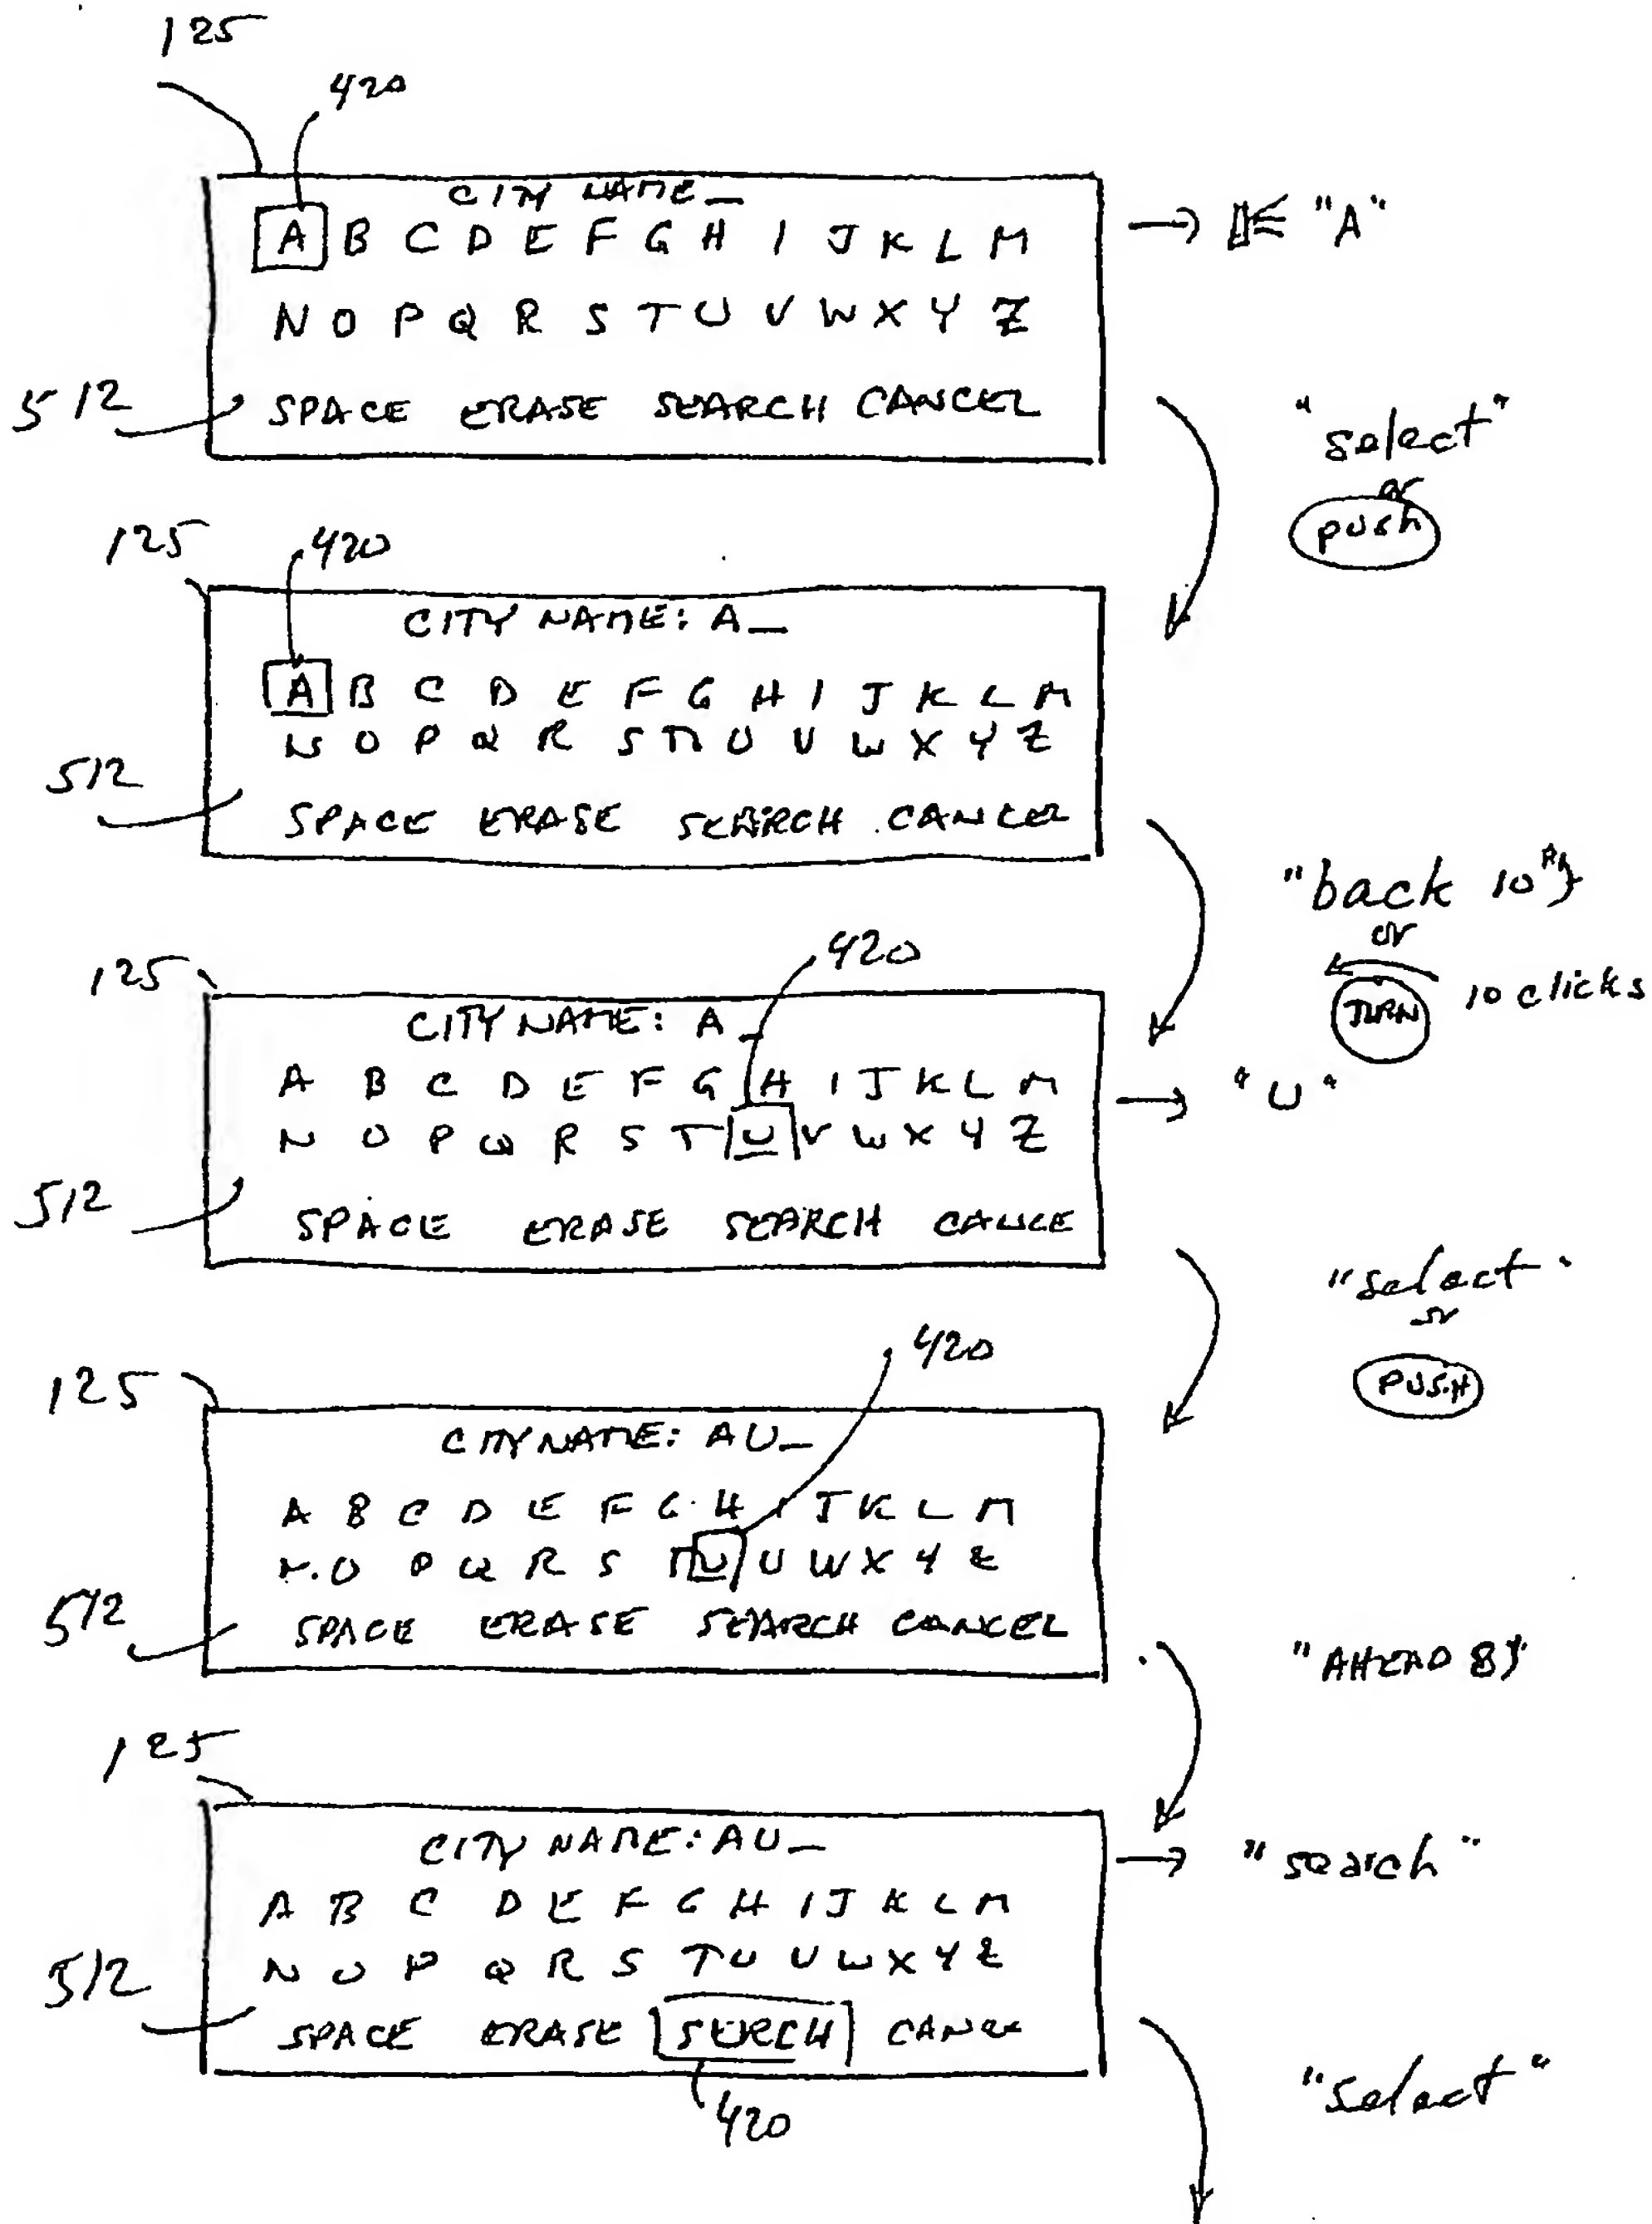 125
420
CITY NAME_
A B C D E F G H I J K L M → "A"
N O P Q R S T U V W X Y Z
512 SPACE ERASE SEARCH CANCEL
"select"
or
push
125 420
CITY NAME: A_
A B C D E F G H I J K L M
N O P Q R S T U V W X Y Z
512
SPACE ERASE SEARCH CANCEL
"back 10"
or
TURN 10 clicks
125 420
CITY NAME: A_
A B C D E F G H I J K L M → "U"
N O P Q R S T U V W X Y Z
512
SPACE ERASE SEARCH CANCE
"select"
or
PUSH
125 420
CITY NAME: AU_
A B C D E F G H I J K L M
N O P Q R S T U V W X Y Z
512 SPACE ERASE SEARCH CANCEL
"AHEAD 8"
125
CITY NAME: AU_ → "search"
A B C D E F G H I J K L M
N O P Q R S T U V W X Y Z
512
SPACE ERASE SERCH
420
"select"